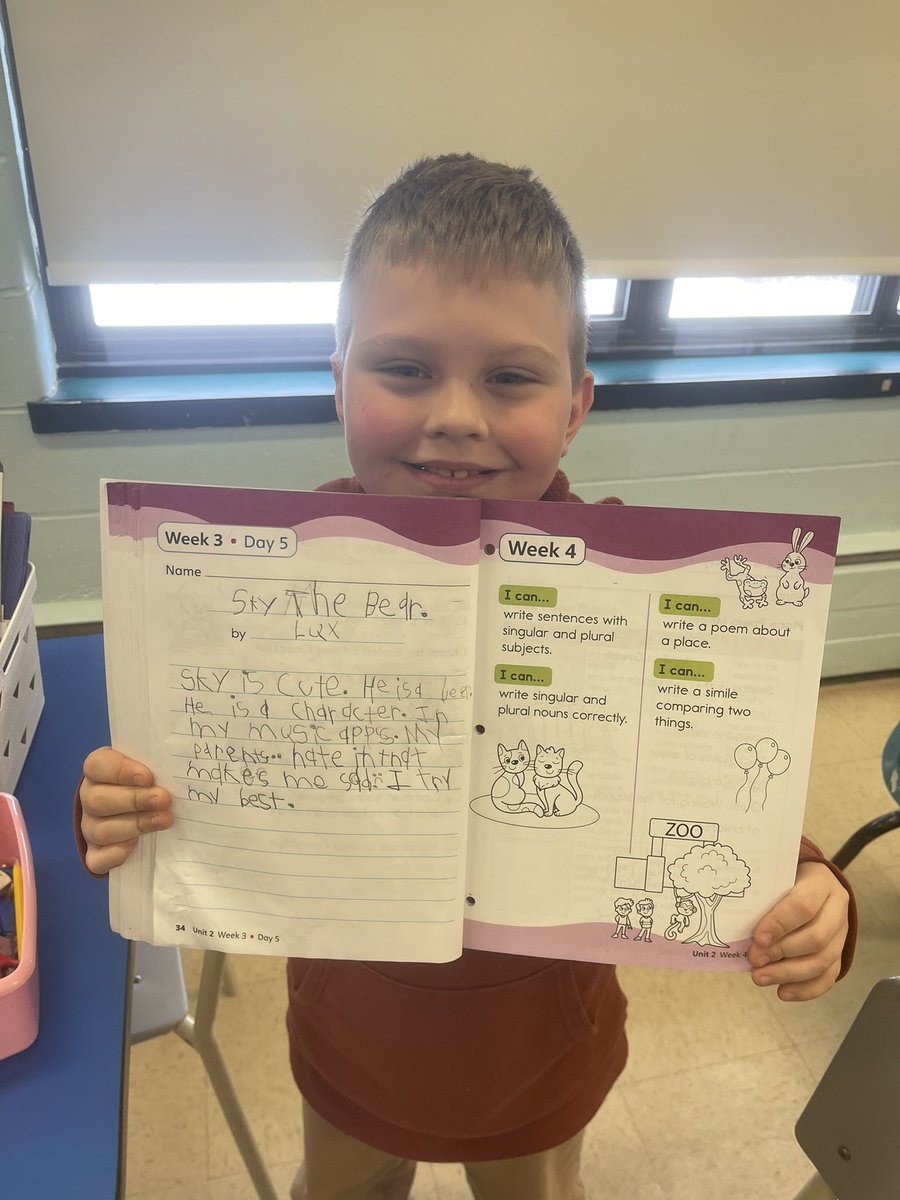 Week 3 • Day 5
Name
Sky The Bear.
by LUX
Sky is cute. He is a bear.
He is a character. In
my music apps. My
parents.. hate it that
makes me sad: I try
my best.
34 Unit 2 Week 3 • Day 5
Week 4
I can...
write sentences with
singular and plural
subjects.
I can...
write singular and
plural nouns correctly.
I can...
write a poem about
a place.
I can...
write a simile
comparing two
things.
ZOO
Unit 2 Week 4